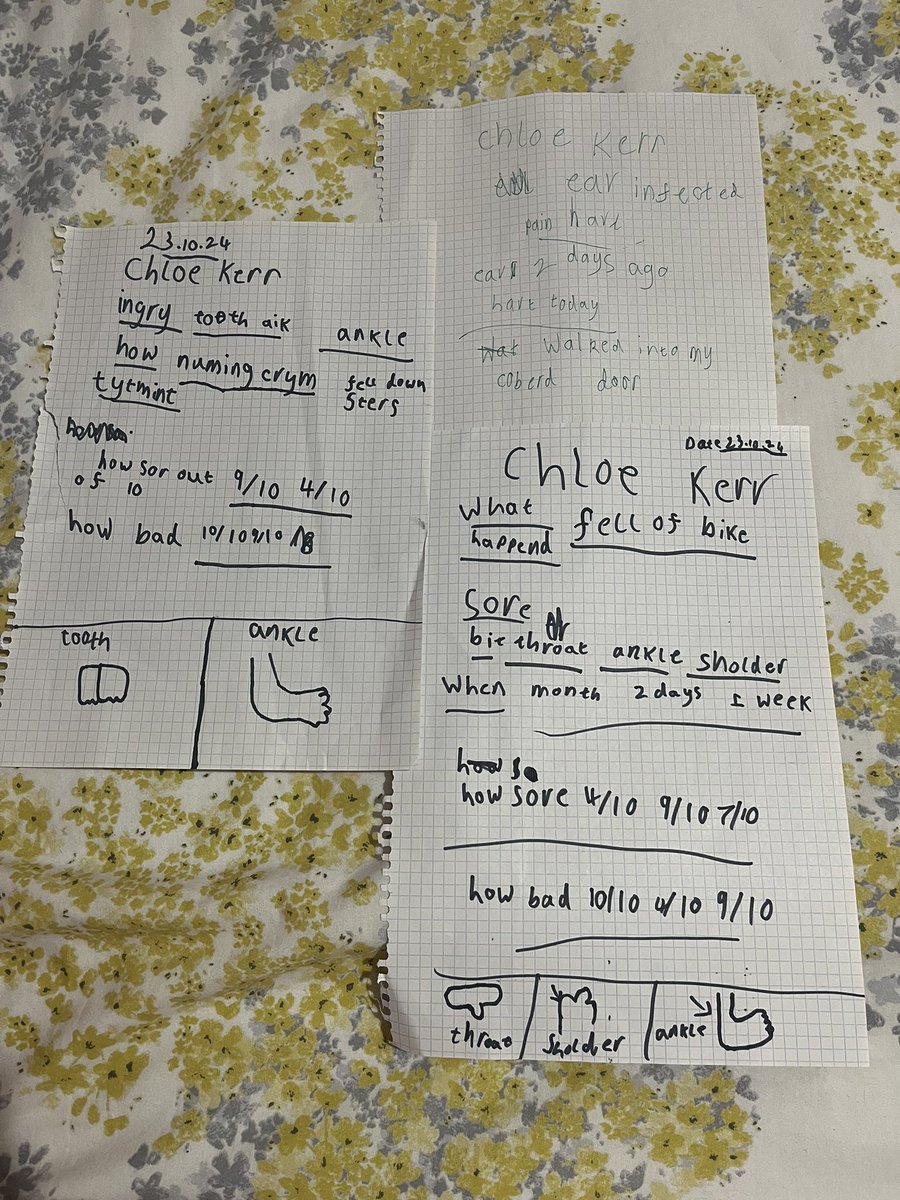 23.10.24
Chloe Kerr
ingry tooth aik ankle
how numing crym fell down
tytmint sters
how sor out 9/10 4/10
of 10
how bad 10/10 9/10
tooth ankle
Chloe Kerr
ear infected
pain hart
ear 2 days ago
hart today
walked into my
coberd door
Date 23.10.24
Chloe Kerr
What
happend fell of bike
Sore
bit throat ankle sholder
When month 2 days 1 week
how s
how sore 4/10 9/10 7/10
how bad 10/10 4/10 9/10
throat sholder ankle